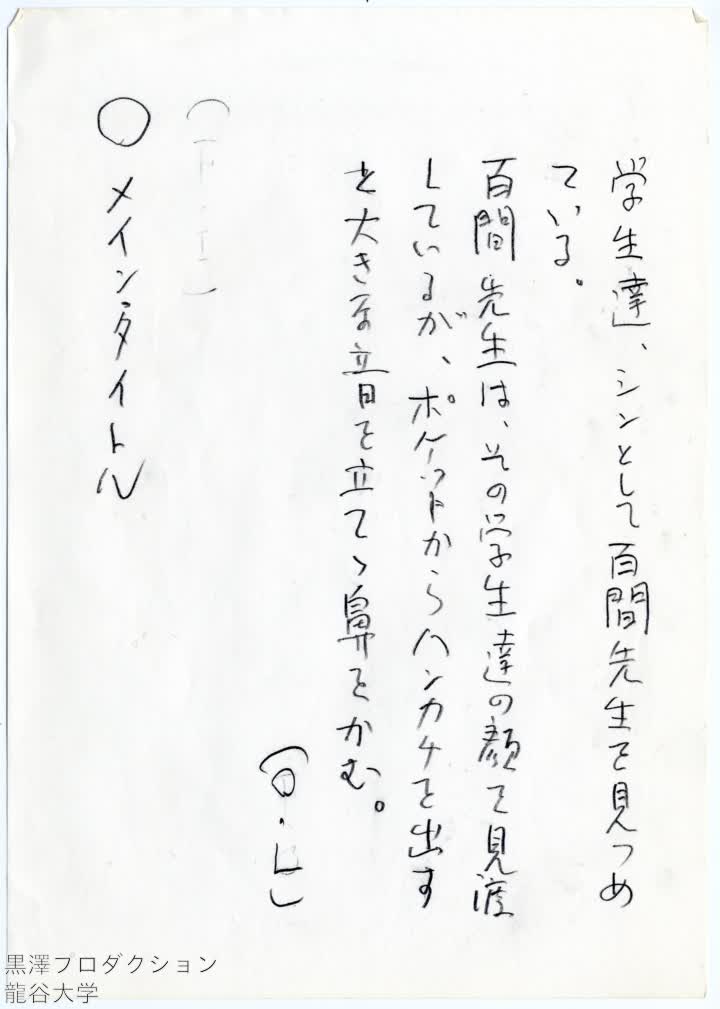 学生達、シンとして百間先生を見つめ
ている。
百間先生は、その学生達の顔を見渡
しているが、ポケットからハンカチを出す
と大きな音を立てゝ鼻をかむ。
○ メイン・タイトル
黒澤プロダクション
龍谷大学